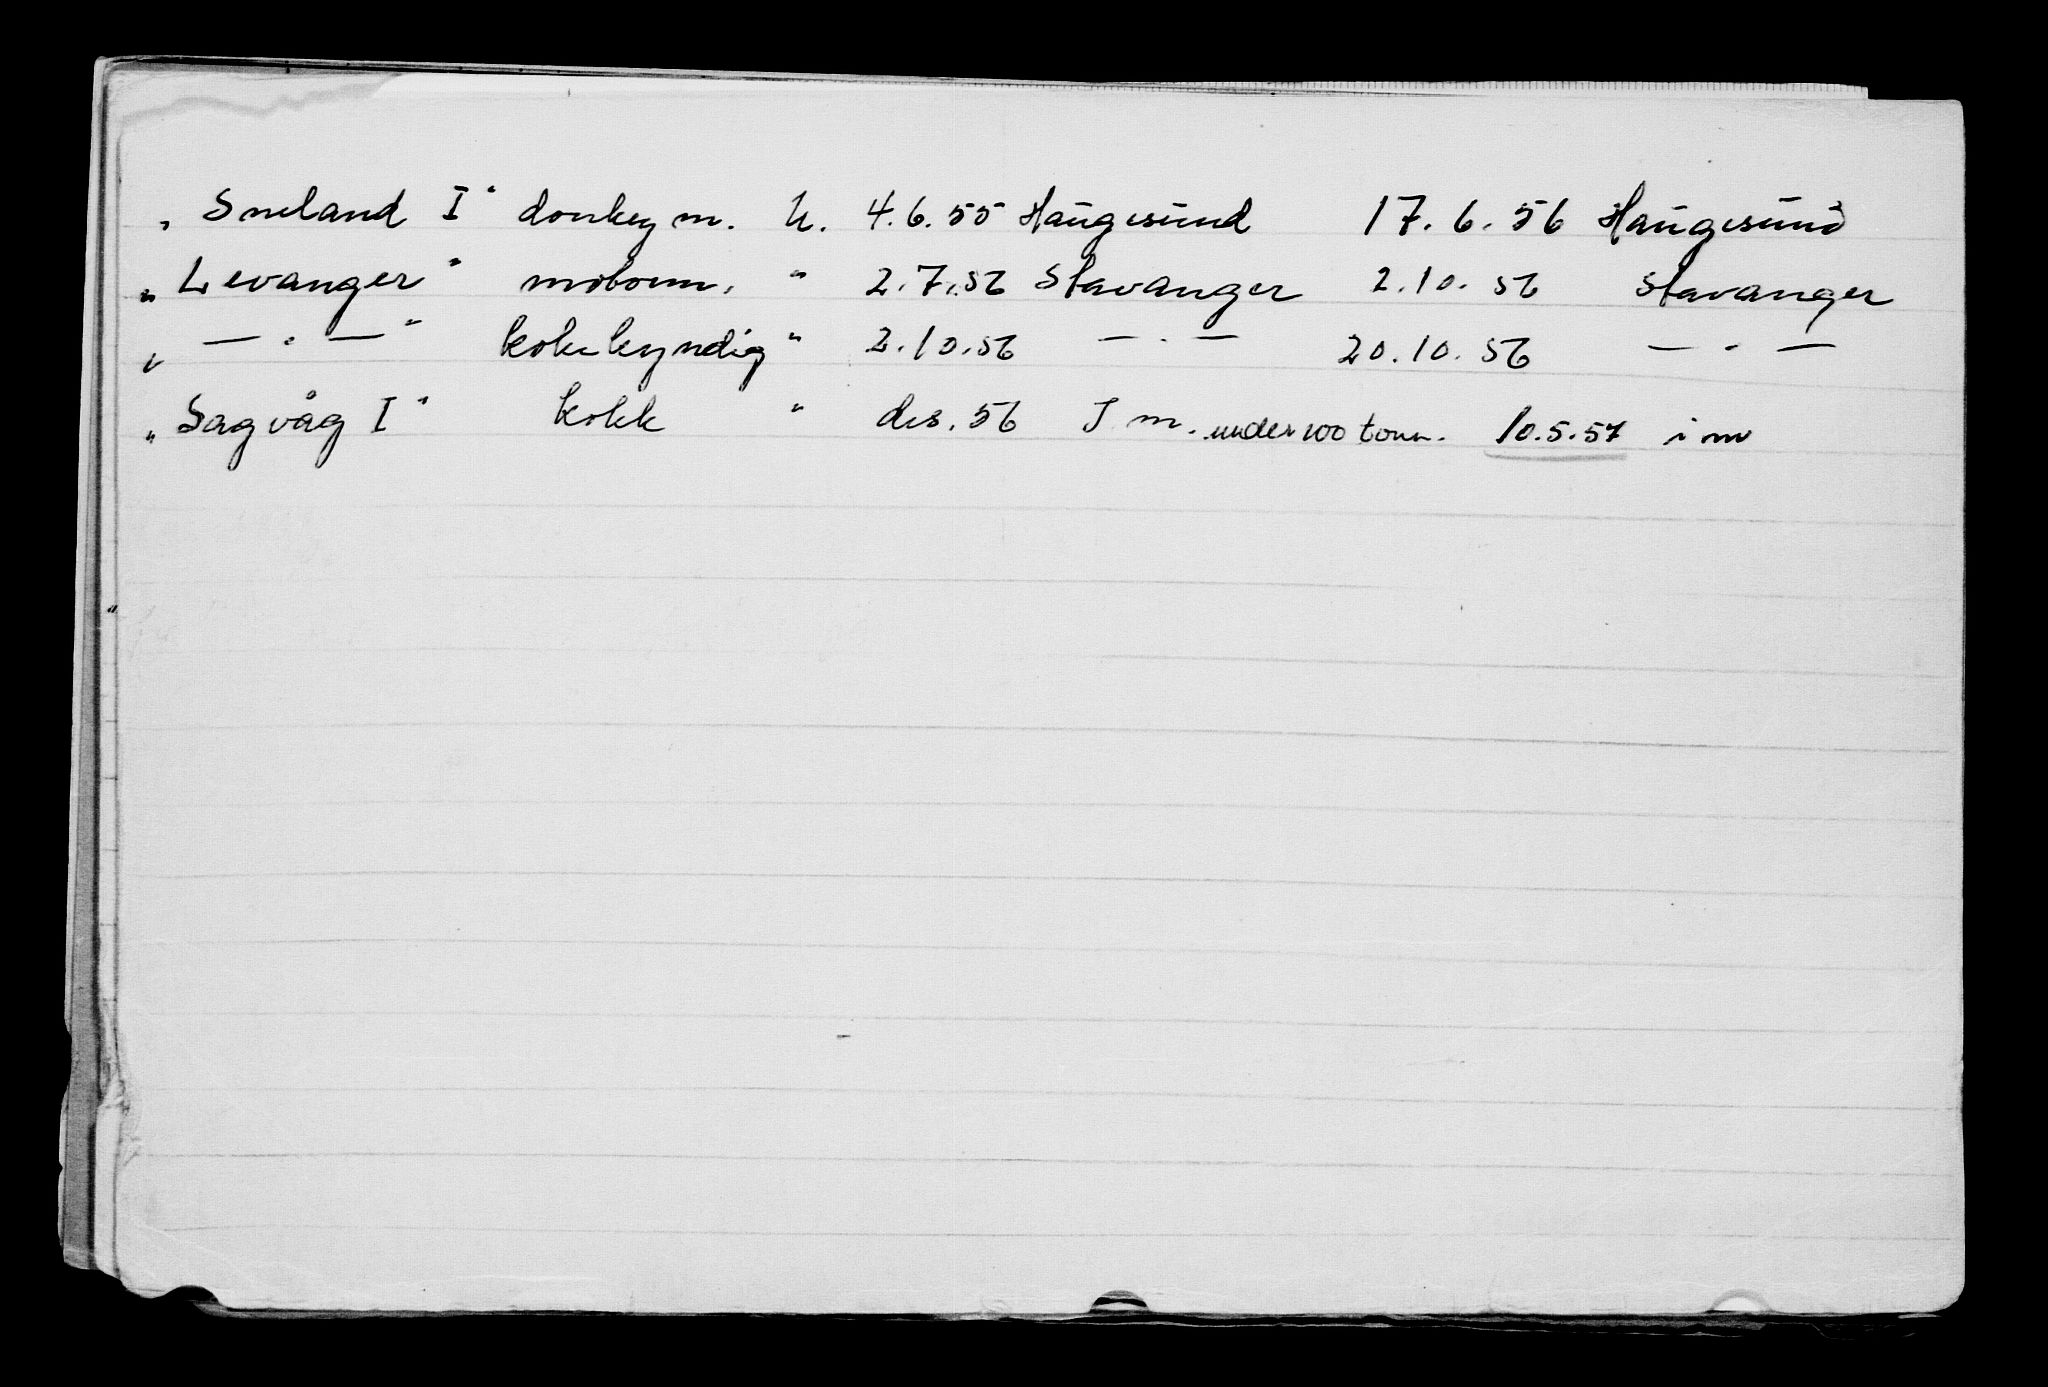 „Sneland I" donkeym. U. 4.6.55 Haugesund 17.6.56 Haugesund
„Levanger" motorm. " 2.7.56 Stavanger 2.10.56 Stavanger
„— . —" kokkyndig " 2.10.56 — . — 20.10.56 — . —
„Sagvåg I" kokk " des. 56 I m. under 100 tonn. 10.5.57 i m